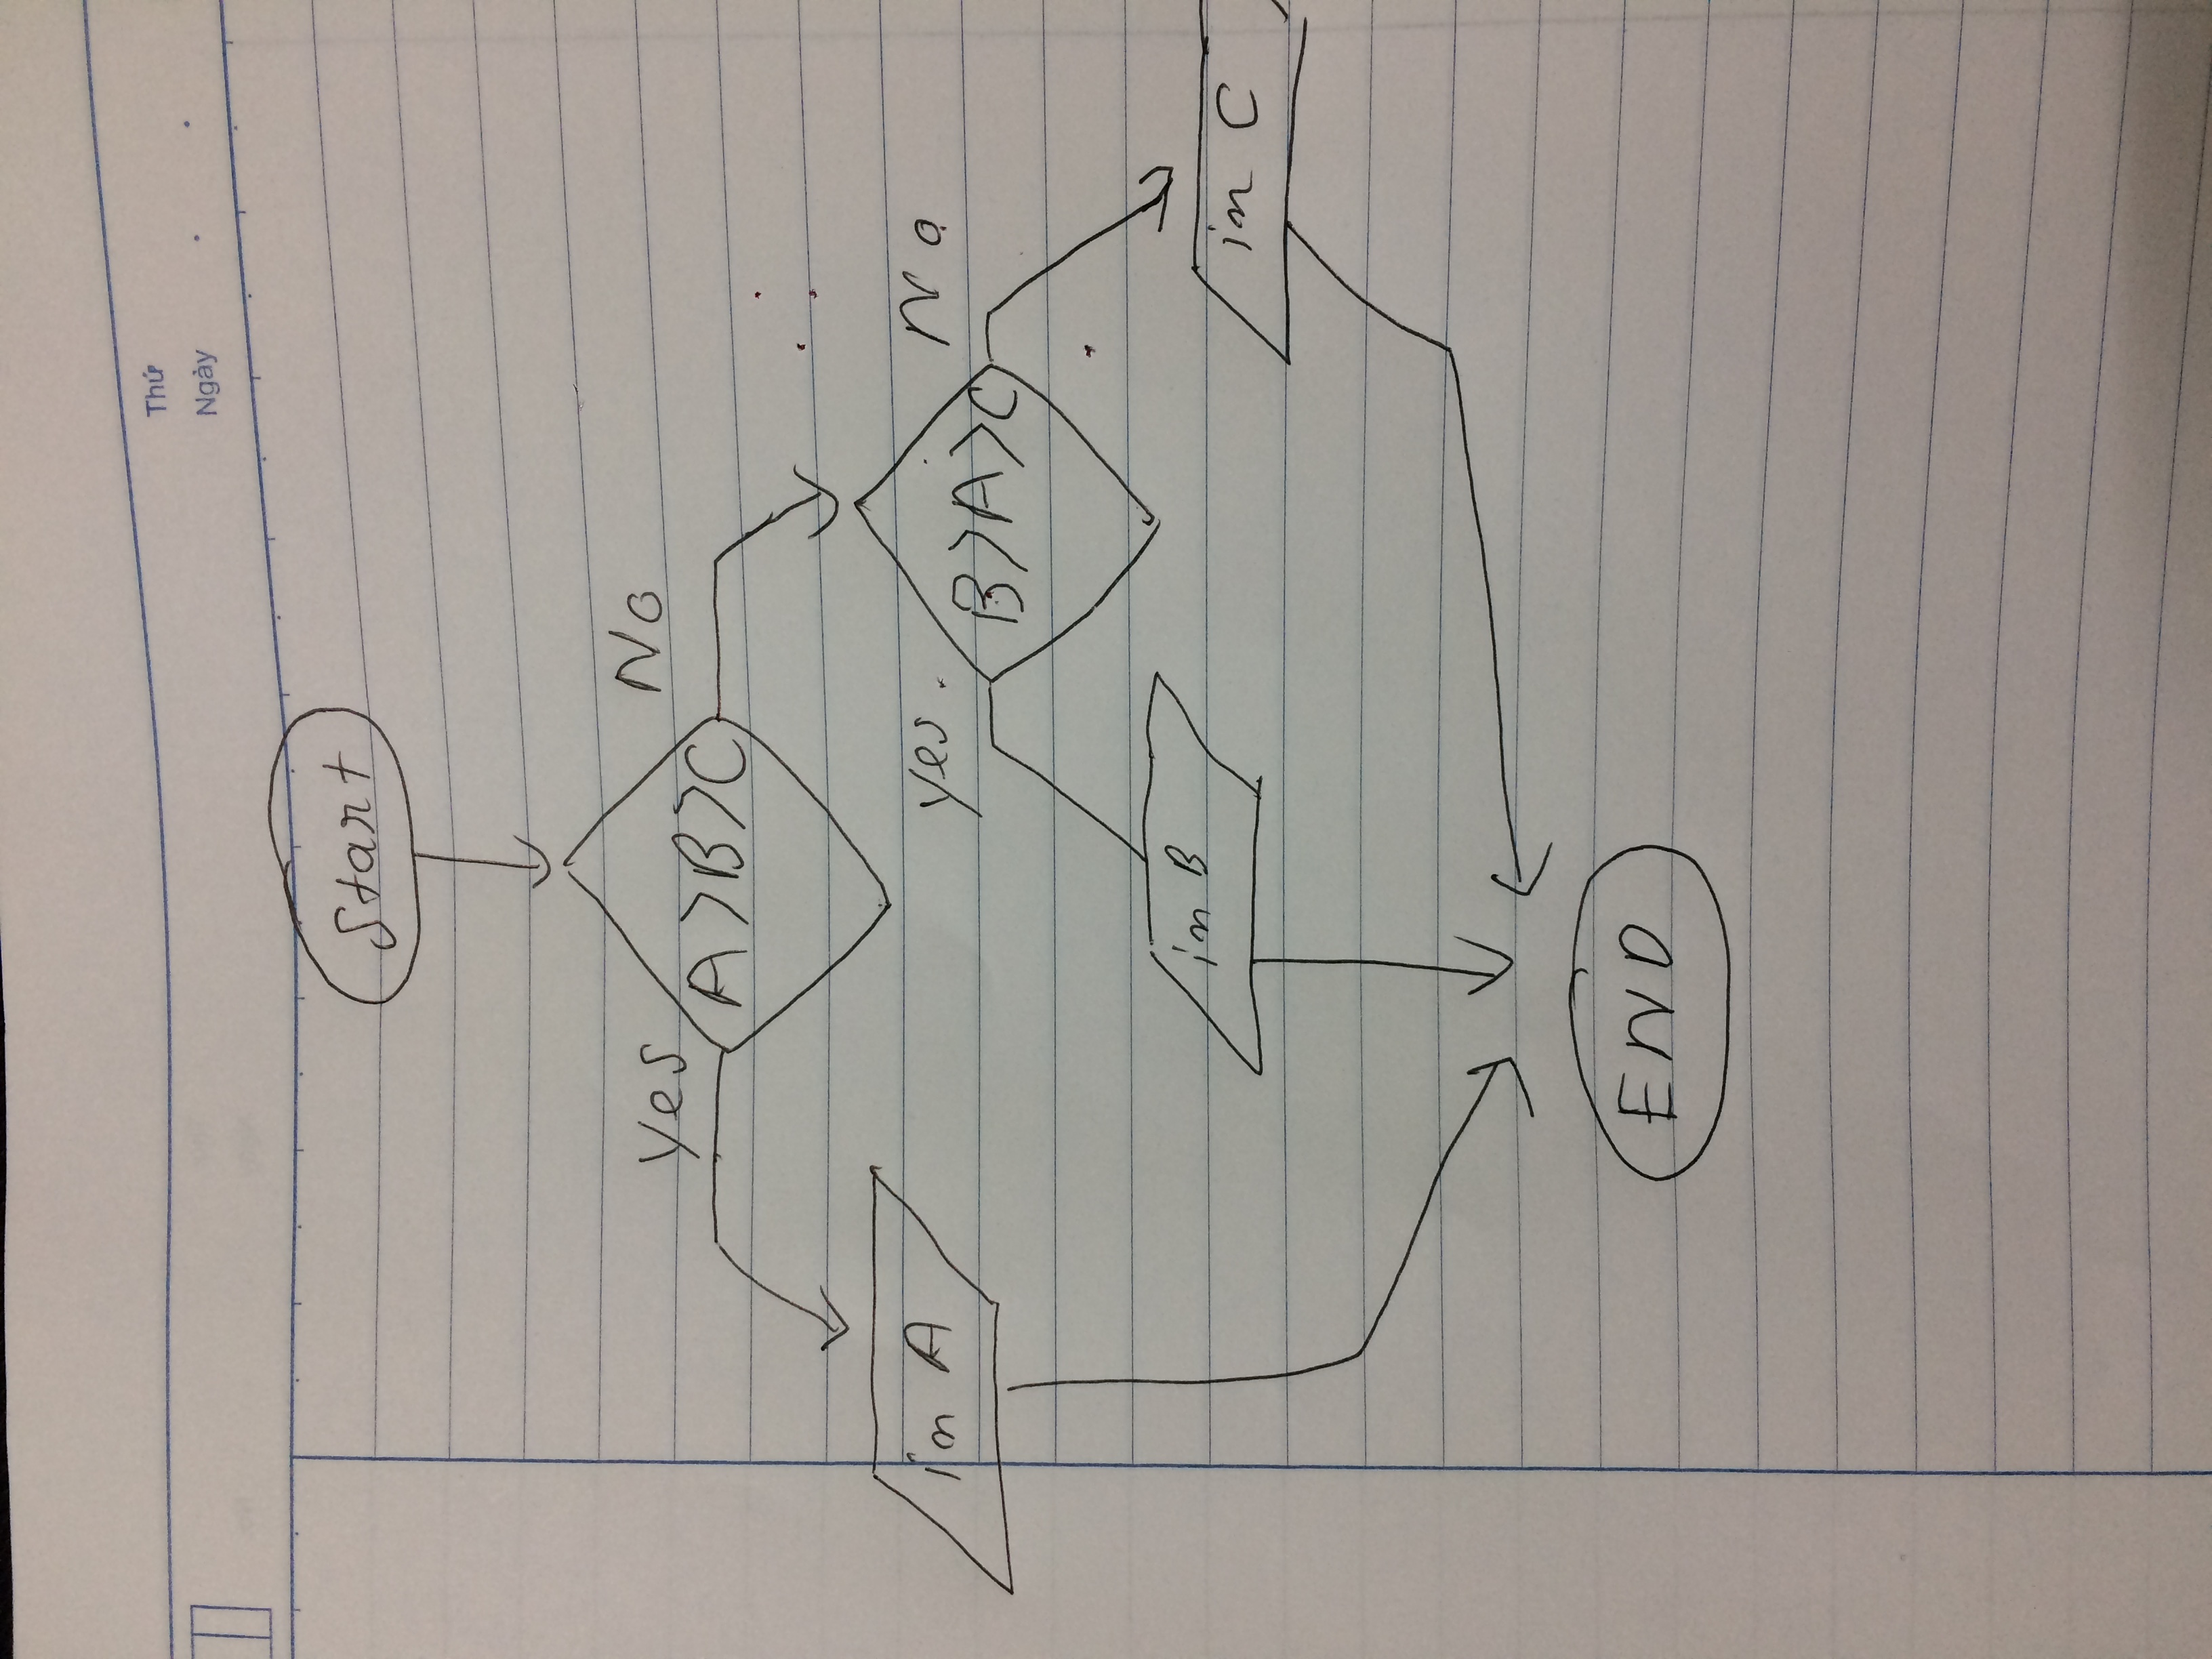 Thứ
Ngày
Start
yes
No
A>B>C
in A
yes.
No
B>A>C
in B
in C
END